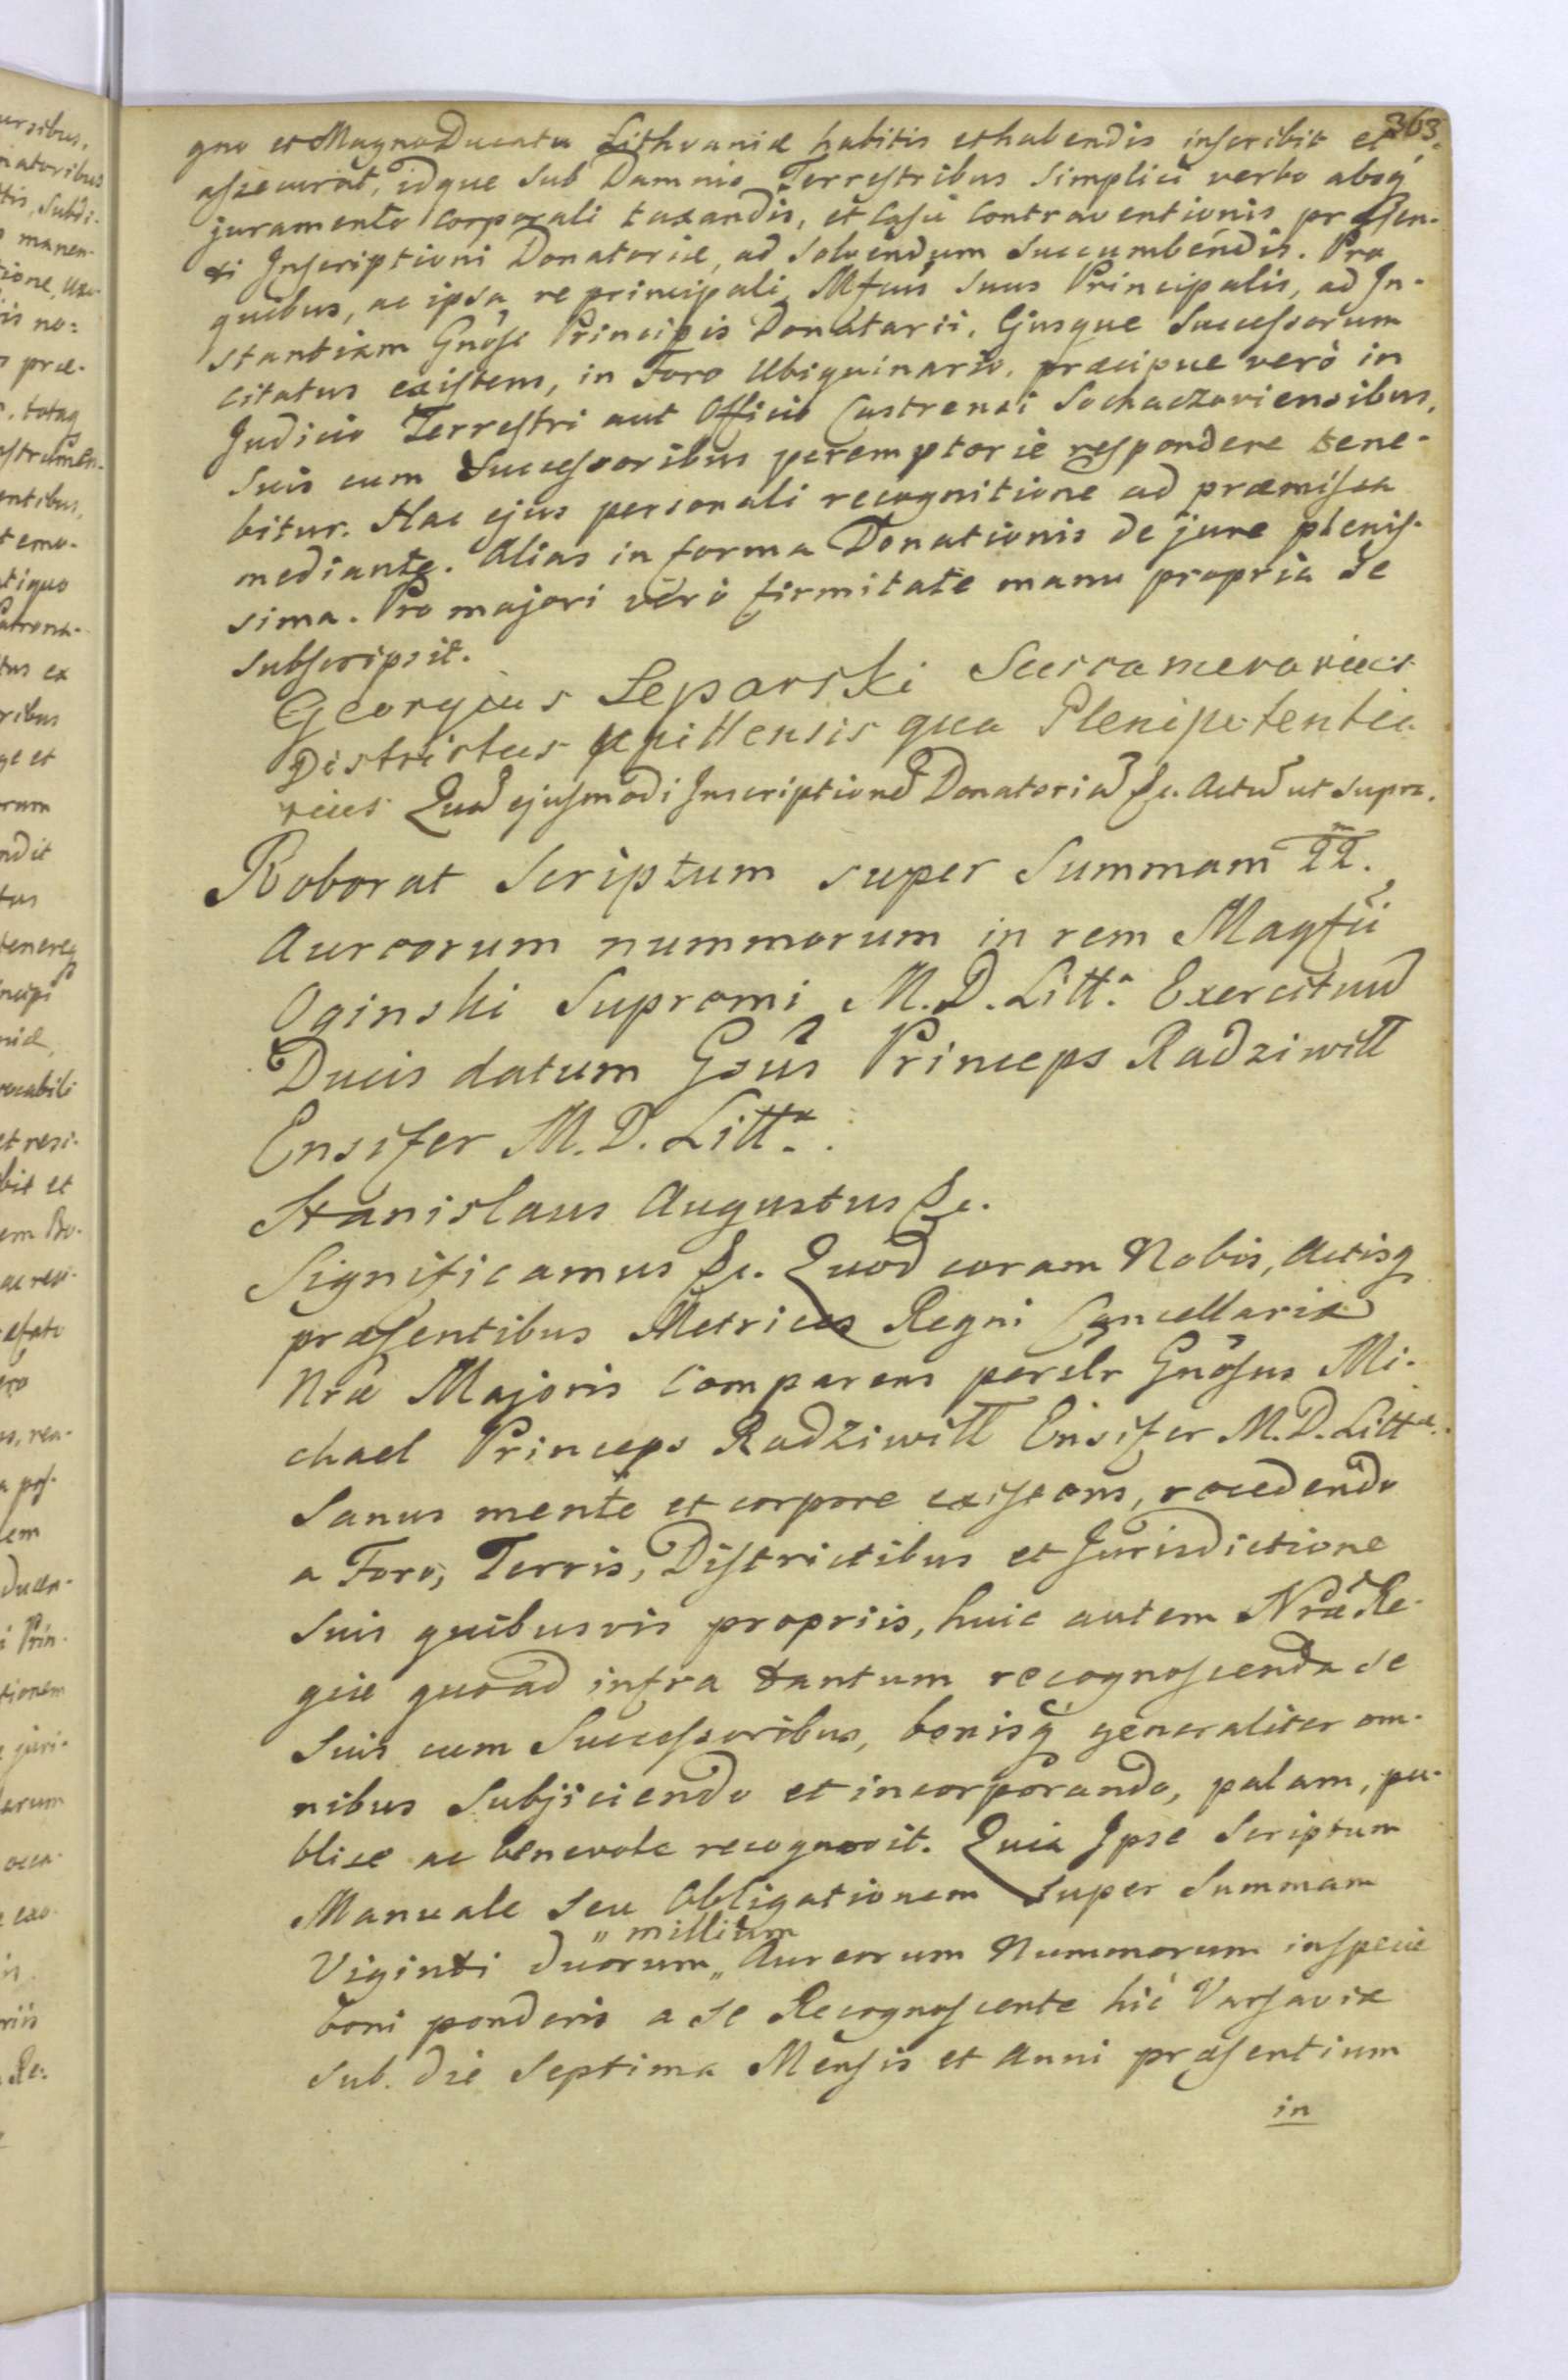 363.
gno et Magno Ducatu Lithvaniæ habitis et habendis inscribit et
assecurat, idque sub Damnis Terrestribus simplici verbo absq́
juramento corporali taxandis, et casu contraventionis præsen-
ti Inscriptioni Donatoriæ, ad solvendum succumbendis. Pro
quibus, ac ipsa re principali, Mfcus suus Principalis, ad In-
stantiam Gnôsi Principis Donatarii, Ejusque Successorum
citatus existens, in Foro Ubiquinario, præcipue verò in
Judicio Terrestri aut Officio Castrensi Sochaczoviensibus,
suis cum Successoribus peremptorie respondere tene-
bitur. Hac ejus personali recognitione ad præmissa
mediante. Alias in forma Donationis de jure plenis-
sima. Pro majori verò firmitate manu propria se
subscripsit.
Georgius Leparski
Districtus qua Plenipotentia-
rius Quâ ejusmodi Inscriptionê Donatoriâ &c. Actû ut supra.
Roborat Scriptum super Summam 22.m
Aureorum nummorum in rem Magfii
Oginski Supremi M.D.Litt.æ Exercituû
Ducis datum Gsûs Princeps Radziwiłł
Ensifer M.D.Litt.æ.
Stanislaus Augustus &c.
Significamus &c. Quod coram Nobis, Actisq́
præsentibus Metrices Regni Cancellariæ
Nræ Majoris Comparens perslr Gnôsus Mi-
chael Princeps Radziwiłł Ensifer M.D.Littæ.
Sanus mente et corpore existens, recedendo
a Foro, Terris, Districtibus et Jurisdictione
suis quibusvis propriis, huic autem Nræ Re-
giæ quoad infra tantum recognoscenda se
suis cum Successoribus, bonisq́ generaliter om-
nibus subjiciendo et incorporando, palam, pu-
blice ac benevole recognovit. Quia Ipse Scriptum
Manuale seu Obligationem super Summam
" millium
Viginti duorum " Aureorum Nummorum in specie
boni ponderis a se Recognoscente hic Varsaviæ
sub die Septima Mensis et Anni præsentium
in